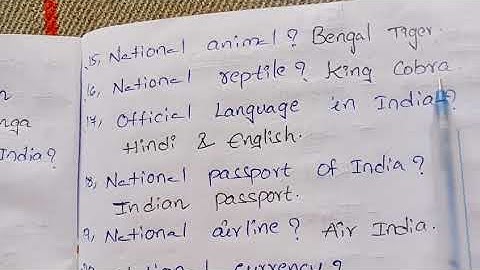 15, National animal? Bengal Tiger.
16, National reptile? King Cobra
17, Official Language in India?
nga
Hindi & English.
India?
18, National passport of India?
Indian passport.
9, National airline? Air India.
currency?